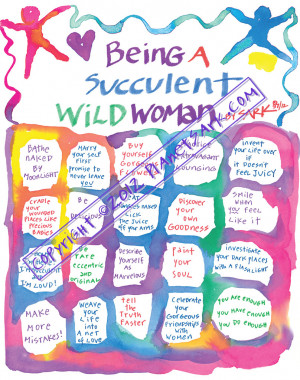 Being A
Succulent
Wild Woman
BY SARK
COPYRIGHT © 2012 PLANETSARK.COM
BATHE
NAKED BY
MOONLIGHT
MARRY
YOUR SELF
FIRST
PROMISE TO
NEVER LEAVE
YOU
BUY
YOURSELF
GORGEOUS
FLOWERS
EXTRAVAGANT
LOUNGING
INVENT
YOUR LIFE OVER
IF IT
DOESN'T
FEEL JUICY
CRADLE
YOUR
WOUNDED
PLACES LIKE
PRECIOUS
BABIES
BE
DELICIOUS
EAT
THE JUICE
OF YOUR ARMS
DISCOVER
YOUR OWN
GOODNESS
SMILE
WHEN
YOU FEEL
LIKE IT
I'M
SUCCULENT
AND
I'M LOUD!
BE
RARE
ECCENTRIC
AND
ORIGINAL
DESCRIBE
YOURSELF
AS
MARVELOUS
PAINT
YOUR
SOUL
INVESTIGATE
YOUR DARK PLACES
WITH A FLASHLIGHT
MAKE
MORE
MISTAKES!
WEAVE
YOUR
LIFE
INTO A
NET OF
LOVE
TELL
THE
TRUTH
FASTER
CELEBRATE
YOUR
GORGEOUS
FRIENDSHIPS
WITH
WOMEN
YOU ARE ENOUGH
YOU HAVE ENOUGH
YOU DO ENOUGH